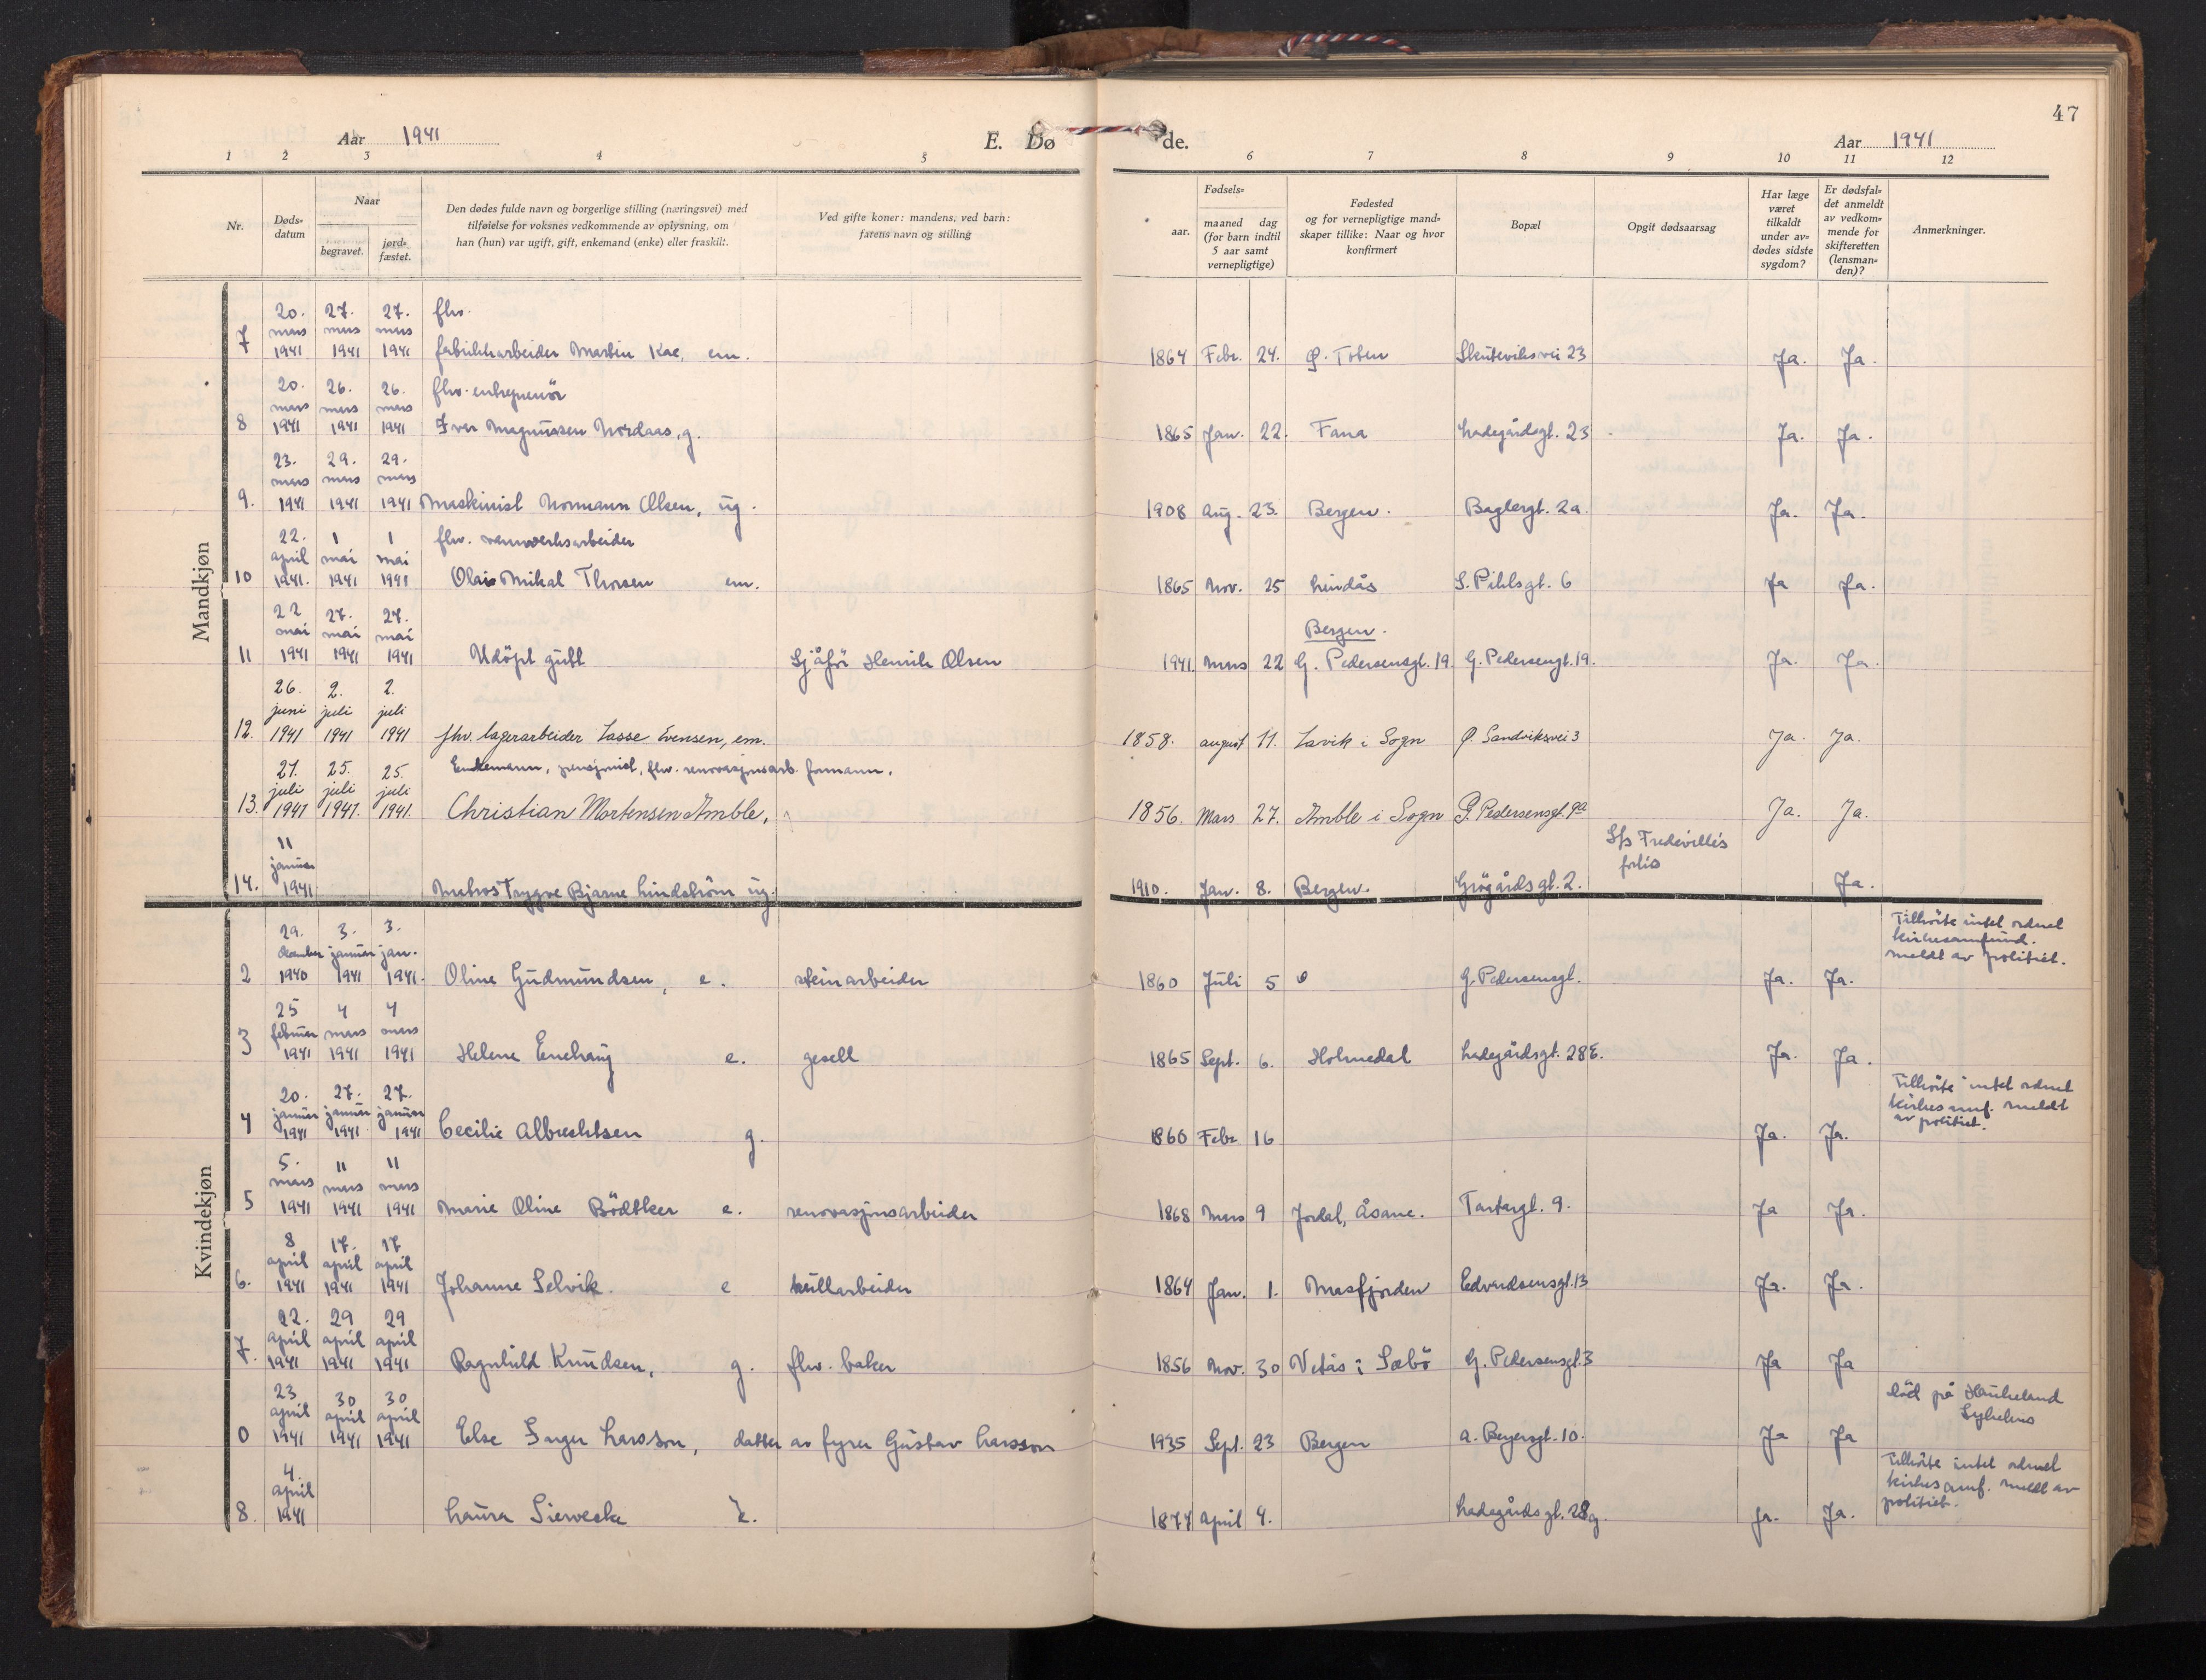 47
Aar 1941
E. Dø
de.
Aar 1941
1 2 3 4 5 6 7 8 9 10 11 12
Nr.
Døds-
datum
Naar
begravet.
jord-
fæstet.
Den dødes fulde navn og borgerlige stilling (næringsvei) med
tilføielse for voksnes vedkommende av oplysning, om
han (hun) var ugift, gift, enkemand (enke) eller fraskilt.
Ved gifte koner: mandens, ved barn:
farens navn og stilling
Fødsels-
aar.
maaned dag
(for barn indtil
5 aar samt
vernepligtige)
Fødested
og for vernepligtige mand-
skaper tillike: Naar og hvor
konfirmert
Bopæl
Opgit dødsaarsag
Har læge
været
tilkaldt
under av-
dødes sidste
sygdom?
Er dødsfal-
det anmeldt
av vedkom-
mende for
skifteretten
(lensman-
den)?
Anmerkninger.
Mandkjøn
20. 27. 27. fhv.
mars mars mars
7 1941 1941 1941 fabrikkarbeider Martin Kae, em. 1864 Febr. 24. Ø. Toten Skuteviksvei 23 Ja. Ja.
20. 26. 26. fhv. entreprenör
mars mars mars
8 1941 1941 1941 Iver Magnussen Nordaas, g. 1865 Jan. 22. Fana Ladegårdsgt. 23 Ja. Ja.
23. 29. 29.
mars mars mars
9. 1941 1941 1941 Maskinist Normann Olsen, ug. 1908 Aug. 23. Bergen. Baglergt. 2a. Ja. Ja.
22. 1 1 fhv.
april mai mai
10 1941. 1941 1941 Olai Mikal Thorsen em. 1865 Nov. 25 Lindås S. Pihlsgt. 6 Ja Ja.
22 27. 27. Bergen.
mai mai mai
11 1941 1941 1941 Udöpt gutt Sjåför Henrik Olsen 1941. Mars 22 G. Pedersensgt. 19. G. Pedersensgt. 19. Ja. Ja.
26. 2. 2.
juni juli juli
12. 1941 1941 1941 fhv. lagerarbeider Lasse Evensen, em. 1858. august 11. Lavik i Sogn Ø. Sandviksvei 3 Ja. Ja.
21. 25. 25. Enkemann, pensjonist, fhv. renovasjonsarb. formann.
juli juli juli
13. 1941 1941. 1941. Christian Mortensen Amble, 1856. Mars 27. Amble i Sogn G. Pedersensgt. 9a Ja. Ja.
11 S/s Fredevilles
januar forlis
14. 1941 Matros Trygve Bjarne Lindström ug. 1910. Jan. 8. Bergen. Grøgårdsgt. 2. Ja.
Kvindekjøn
29. 3. 3. Tilhörte intet ordnet
desember januar jan. kirkesamfund.
2 1940 1941 1941. Oline Gudmundsen, e. steinarbeider 1860 Juli 5 G. Pedersensgt. Ja. Ja. meldt av politiet.
25 4 4
februar mars mars
3 1941 1941 1941 Helene Enehaug e. gesell 1865 Sept. 6. Holmedal Ladegårdsgt. 28E. Ja. Ja.
20. 27. 27. Tilhörte intet ordnet
januar januar januar kirkesamf. meldt
4 1941 1941. 1941 Cecilie Albrechtsen g. 1860 Febr 16 Ja. Ja. av politiet.
5. 11 11
mars mars mars
5 1941 1941 1941 Marie Oline Bödtker e. renovasjonsarbeider 1868 Mars 9 Jordal, Åsane. Tartargt. 9. Ja Ja.
8 17. 17
april april april
6. 1941 1941 1941 Johanne Selvik. e kullarbeider 1864 Jan. 1. Masfjorden Edvardsensgt. 13 Ja. Ja.
22. 29 29
april april april
7. 1941 1941 1941 Ragnhild Knudsen, g. fhv. baker 1856 Nov. 30 Vetås i Sæbö G. Pedersensgt. 3 Ja Ja
23 30 30 död på Haukeland
april april april Sykehus
0 1941 1941 1941 Else Inger Larsson, datter av fyrer Gustav Larsson 1935 Sept. 23 Bergen A. Beyersgt. 10. Ja Ja
4. Tilhörte intet ordnet
april kirkesamf. meldt av
8. 1941 Laura Siewecke e. 1877 April 4. Ladegårdsgt. 28g Ja. Ja. politiet.